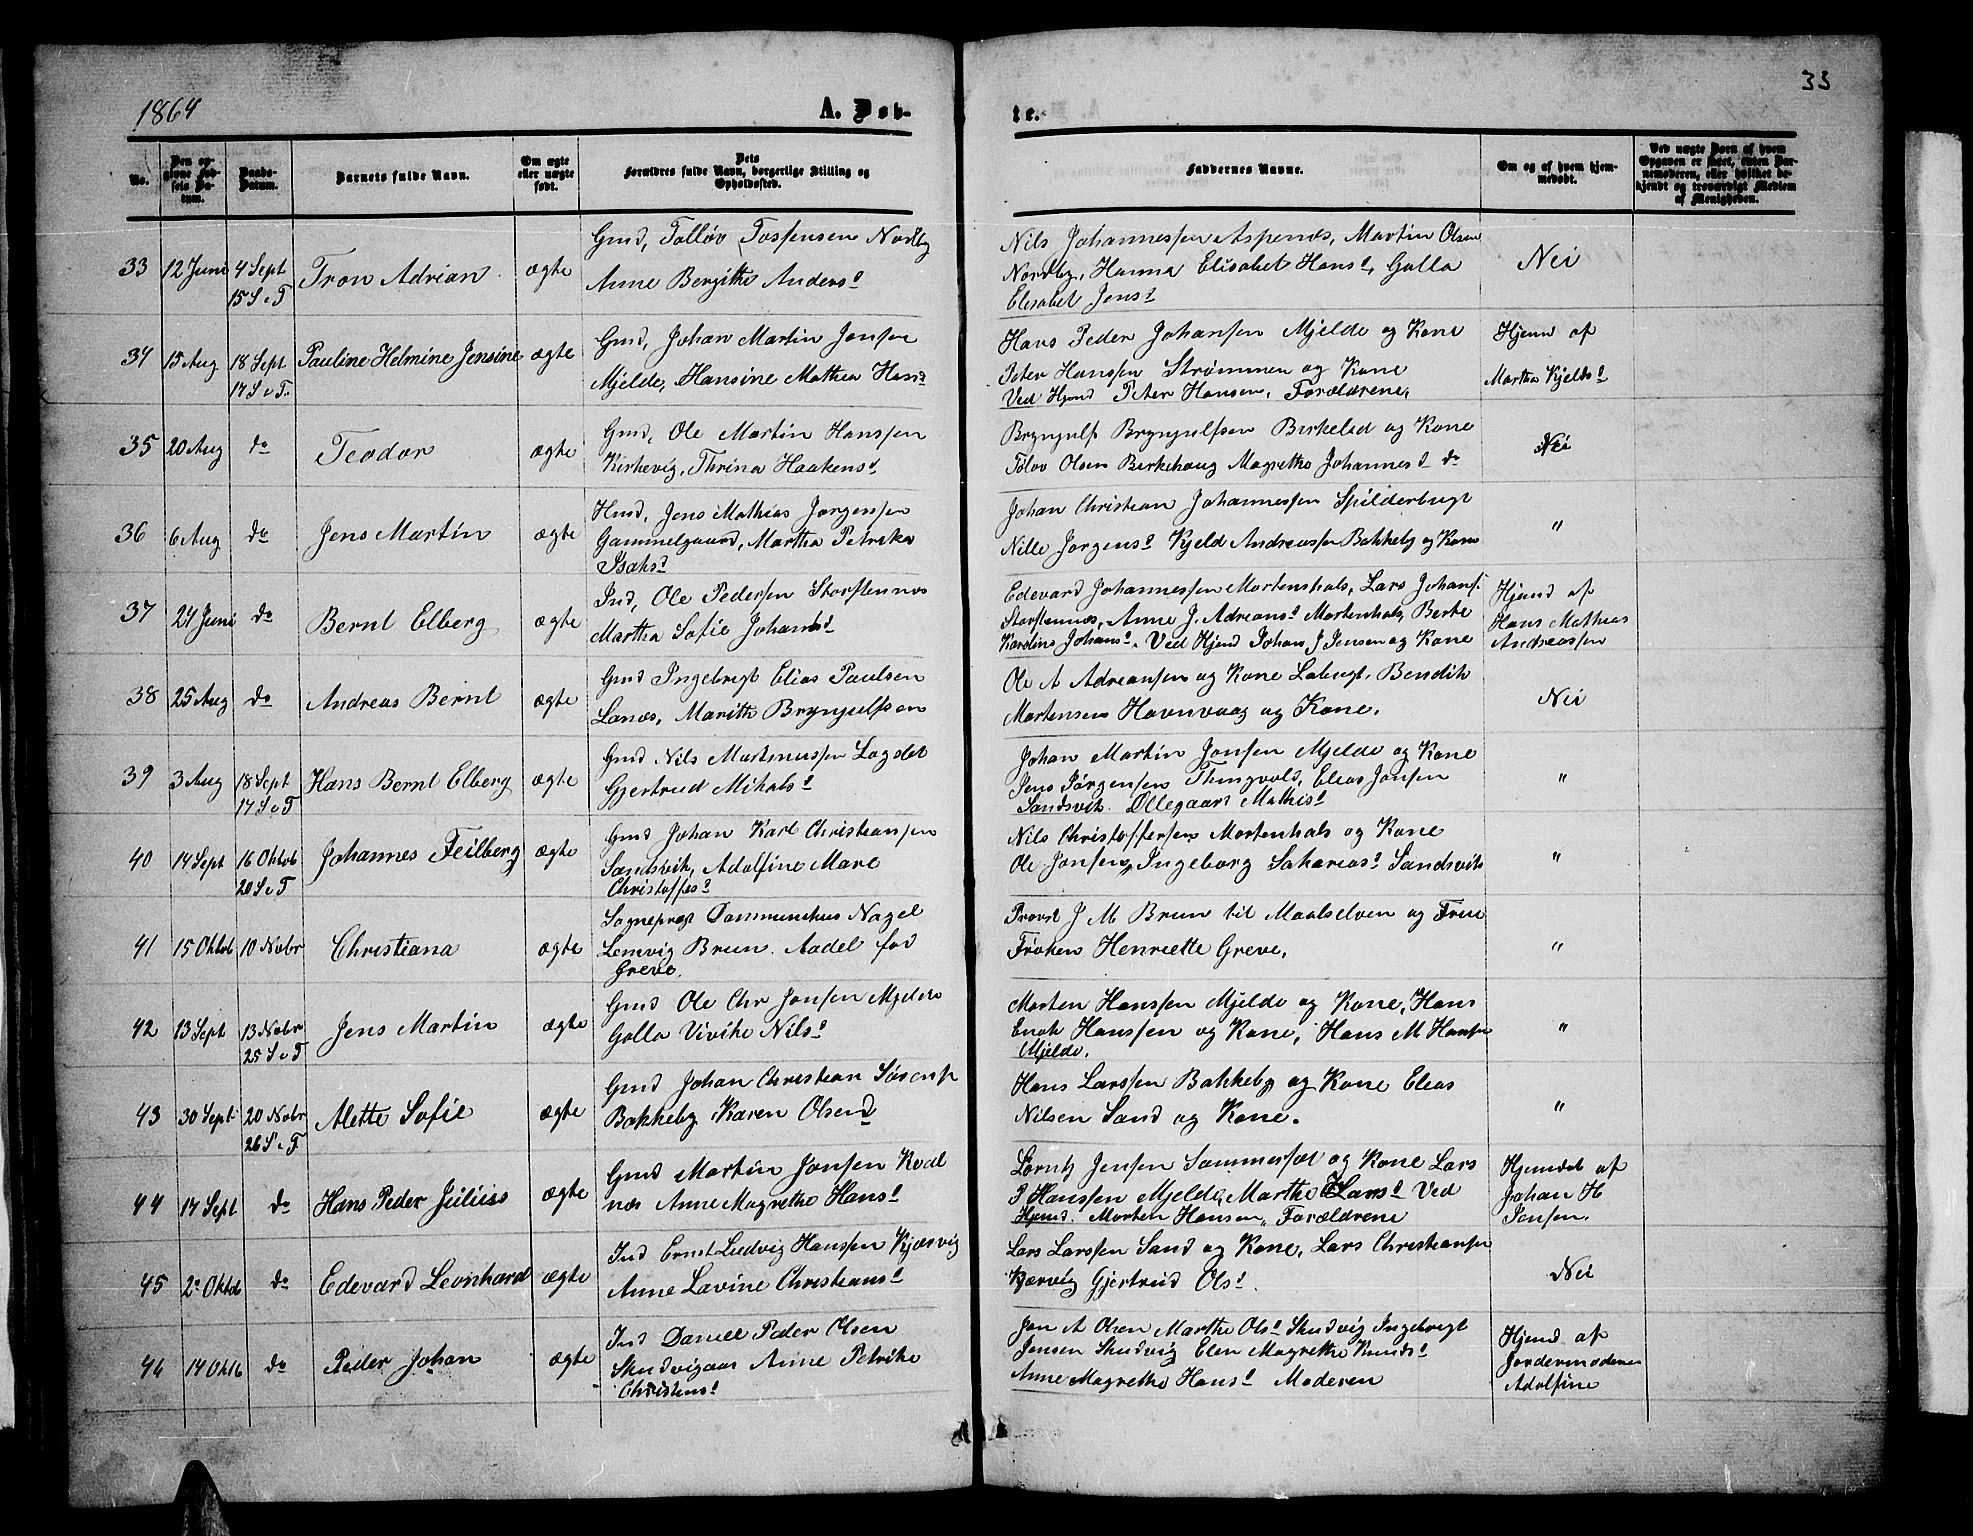 1864
A. Døb-
te.
33
No.
Den op-
givne Fød-
sels Da-
tum.
Daabs-
Datum.
Barnets fulde Navn.
Om ægte
eller uægte
født.
Dets
Forældres fulde Navn, borgerlige Stilling og
Opholdssted.
Faddernes Navne.
Om og af hvem hjem-
medøbt.
Ved uægte Børn af hvem
Opgaven er skeet, enten Bar-
nemoderen, eller hvilket be-
kjendt og troværdigt Medlem
af Menigheden.
33 12 Juni 4 Sept
15 S e T
Tron Adrian
ægte
Gmd, Tolløv Tossensen Nordby
Anne Bergitte Andersd
Nils Johannessen Aspenæs, Martin Olsen
Nordby, Hanna Elisabet Hansd, Golla
Elisabet Jensd
Nei
34 15 Aug 18 Sept
17 S e T.
Pauline Helmine Jensine
ægte
Gmd, Johan Martin Jonsen
Mjelde, Hansine Mathea Hansd
Hans Peder Johansen Mjelde og Kone
Peter Hanssen Strømmen og Kone
Ved Hjmd Peter Hansen, Forældrene,
Hjemd af
Martha Kjeldsd
35 20 Aug do
Teodor
ægte
Gmd, Ole Martin Hanssen
Kirkevig, Thrina Haakensd
Brynjulf Brynjulfsen Birkelid og Kone
Tolov Olsen Birkehaug Magrethe Johannesd do
Nei
36 6 Aug do
Jens Martin
ægte
Hmd, Jens Mathias Jørgensen
Gammelgaard, Martha Petrike
Isaksd
Johan Christian Johannessen Spilderbugt
Nille Jørgensd Kjeld Andreassen Bakkeby og Kone
"
37 24 Juni do
Bernt Elberg
ægte
Ind, Ole Pedersen Storstennæs
Martha Sofie Johansd
Edevard Johannessen Mortenhals, Lars Johans.
Storstennæs, Anne J. Adriansd Mortenhals, Berte
Karoline Johansd, Ved Hjmd Johan J Jensen og Kone
Hjemd af
Hans Mathias
Andreassen
38 25 Aug do
Andreas Bernt
ægte
Gmd Ingebrigt Elias Paulsen
Lanæs, Marith Brynjulfsen
Ole A Adreansen og Kone Labugt, Bendik
Mortensen Havnvaag og Kone.
Nei
39 3 Aug 18 Sept
17 S e T
Hans Bernt Elberg
ægte
Gmd Nils Martinussen Logdet
Gjertrud Mikalsd
Johan Martin Jonsen Mjelde og Kone
Jens Jørgensen Thingvold, Elias Jonsen
Sandsvik. Ollegaard Mathisd
"
40 14 Sept 16 Oktob
20 S e T
Johannes Feilberg
ægte
Gmd Johan Karl Christiansen
Sandsvik, Adolfine Mare
Christoffesd
Nils Christoffersen Mortenhals og Kone
Ole Jonsen, Ingeborg Sakariasd Sandsvik
"
41 15 Oktob 10 Nobr
Christiana
ægte
Sogneprest Nagel
Lemvig Brun. Aadel fød
Greve.
Provst J M Brun til Maalselven og Frue
Frøken Henriette Greve,
"
42 13 Sept 13 Nobr
25 S e T
Jens Martin
ægte
Gmd Ole Chr Jonsen Mjelde
Golla Vivike Nilsd
Morten Hanssen Mjelde og Kone, Hans
Enok Hanssen og Kone, Hans M Hansen
Mjelde.
"
43 30 Sept 20 Nobr
26 S e T
Alette Sofie
ægte
Gmd Johan Christian Sørens.
Bakkeby Karen Olsend
Hans Larssen Bakkeby og Kone Elias
Nilsen Sand og Kone.
"
44 17 Sept do
Hans Peder Julius
ægte
Gmd Martin Jonsen Kval
næs Anne Magrethe Hansd
Lorntz Jensen Sommersæt og Kone Lars
P Hanssen Mjelde, Marthe Larsd Ved
Hjemd. Morten Hansen, Forældrene
Hjemdøb af
Johan H
Jensen.
45 2 Oktob do
Edevard Leonhard
ægte
Ind Ernst Ludvig Hanssen Kjærvig
Anne Lavine Christiansd
Lars Larssen Sand og Kone, Lars Christiansen
Kjærvig Gjertrud Olsd.
Nei
46 14 Oktb do
Peder Johan
ægte
Ind Daniel Peder Olsen
Skudvigaas Anne Petrike
Christensd
Jon A Olsen Marthe Olsd Skudvig Ingebrigt
Jensen Skudvig Elen Magrethe Knudsd
Anne Magrethe Hansd Moderen
Hjemd af
Jordermoderen
Adolfine